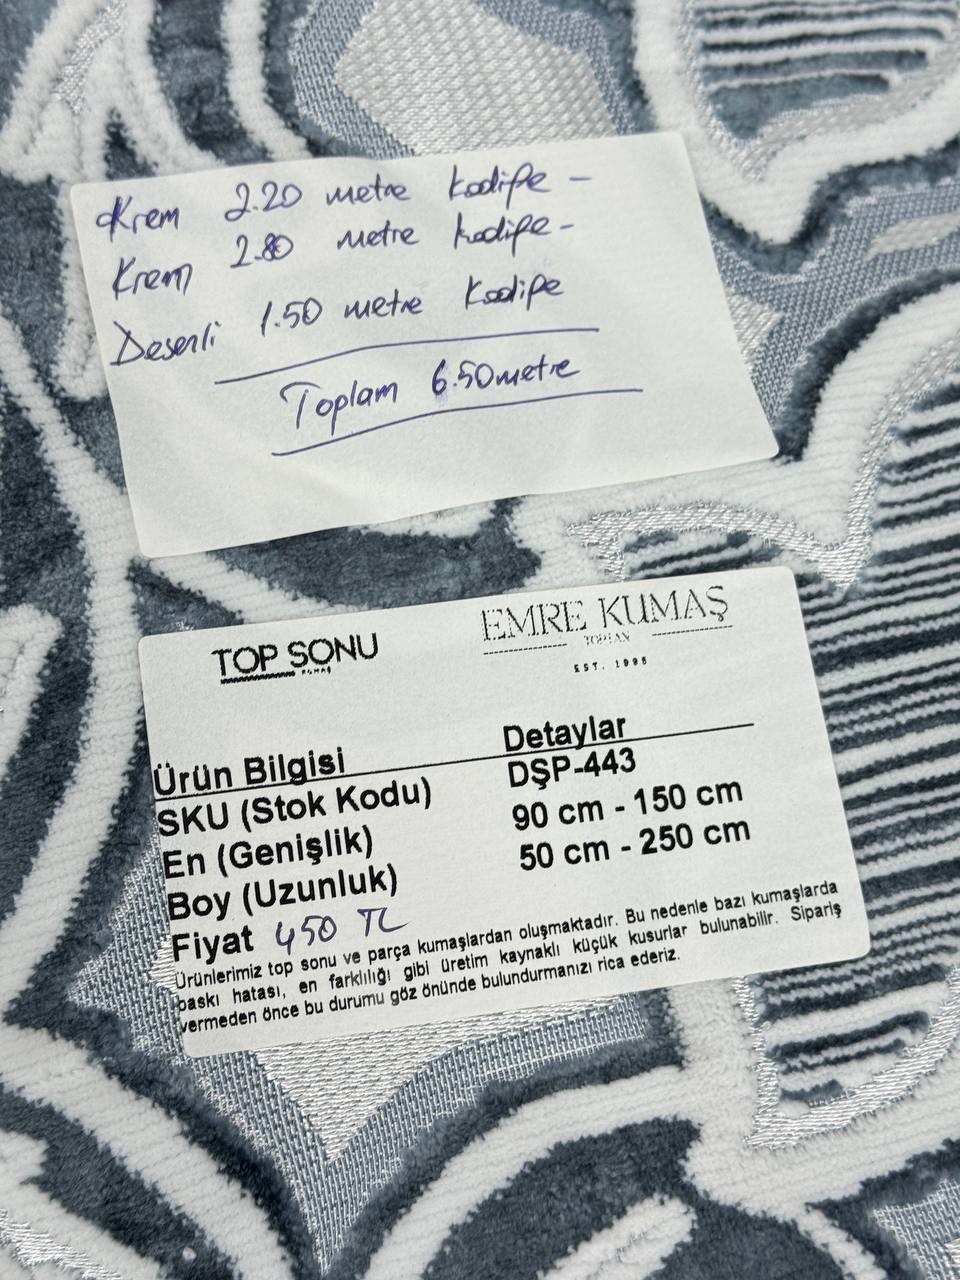 Krem 2.20 metre Kadife -
Krem 2.80 metre kadife -
Desenli 1.50 metre Kadife
Toplam 6.50 metre
TOP SONU
KUMAŞ
EMRE KUMAŞ
TOPTAN
EST. 1995
Ürün Bilgisi Detaylar
SKU (Stok Kodu) DŞP-443
En (Genişlik) 90 cm - 150 cm
Boy (Uzunluk) 50 cm - 250 cm
Fiyat 450 TL
Ürünlerimiz top sonu ve parça kumaşlardan oluşmaktadır. Bu nedenle bazı kumaşlarda
baskı hatası, en farklılığı gibi üretim kaynaklı küçük kusurlar bulunabilir. Sipariş
vermeden önce bu durumu göz önünde bulundurmanızı rica ederiz.